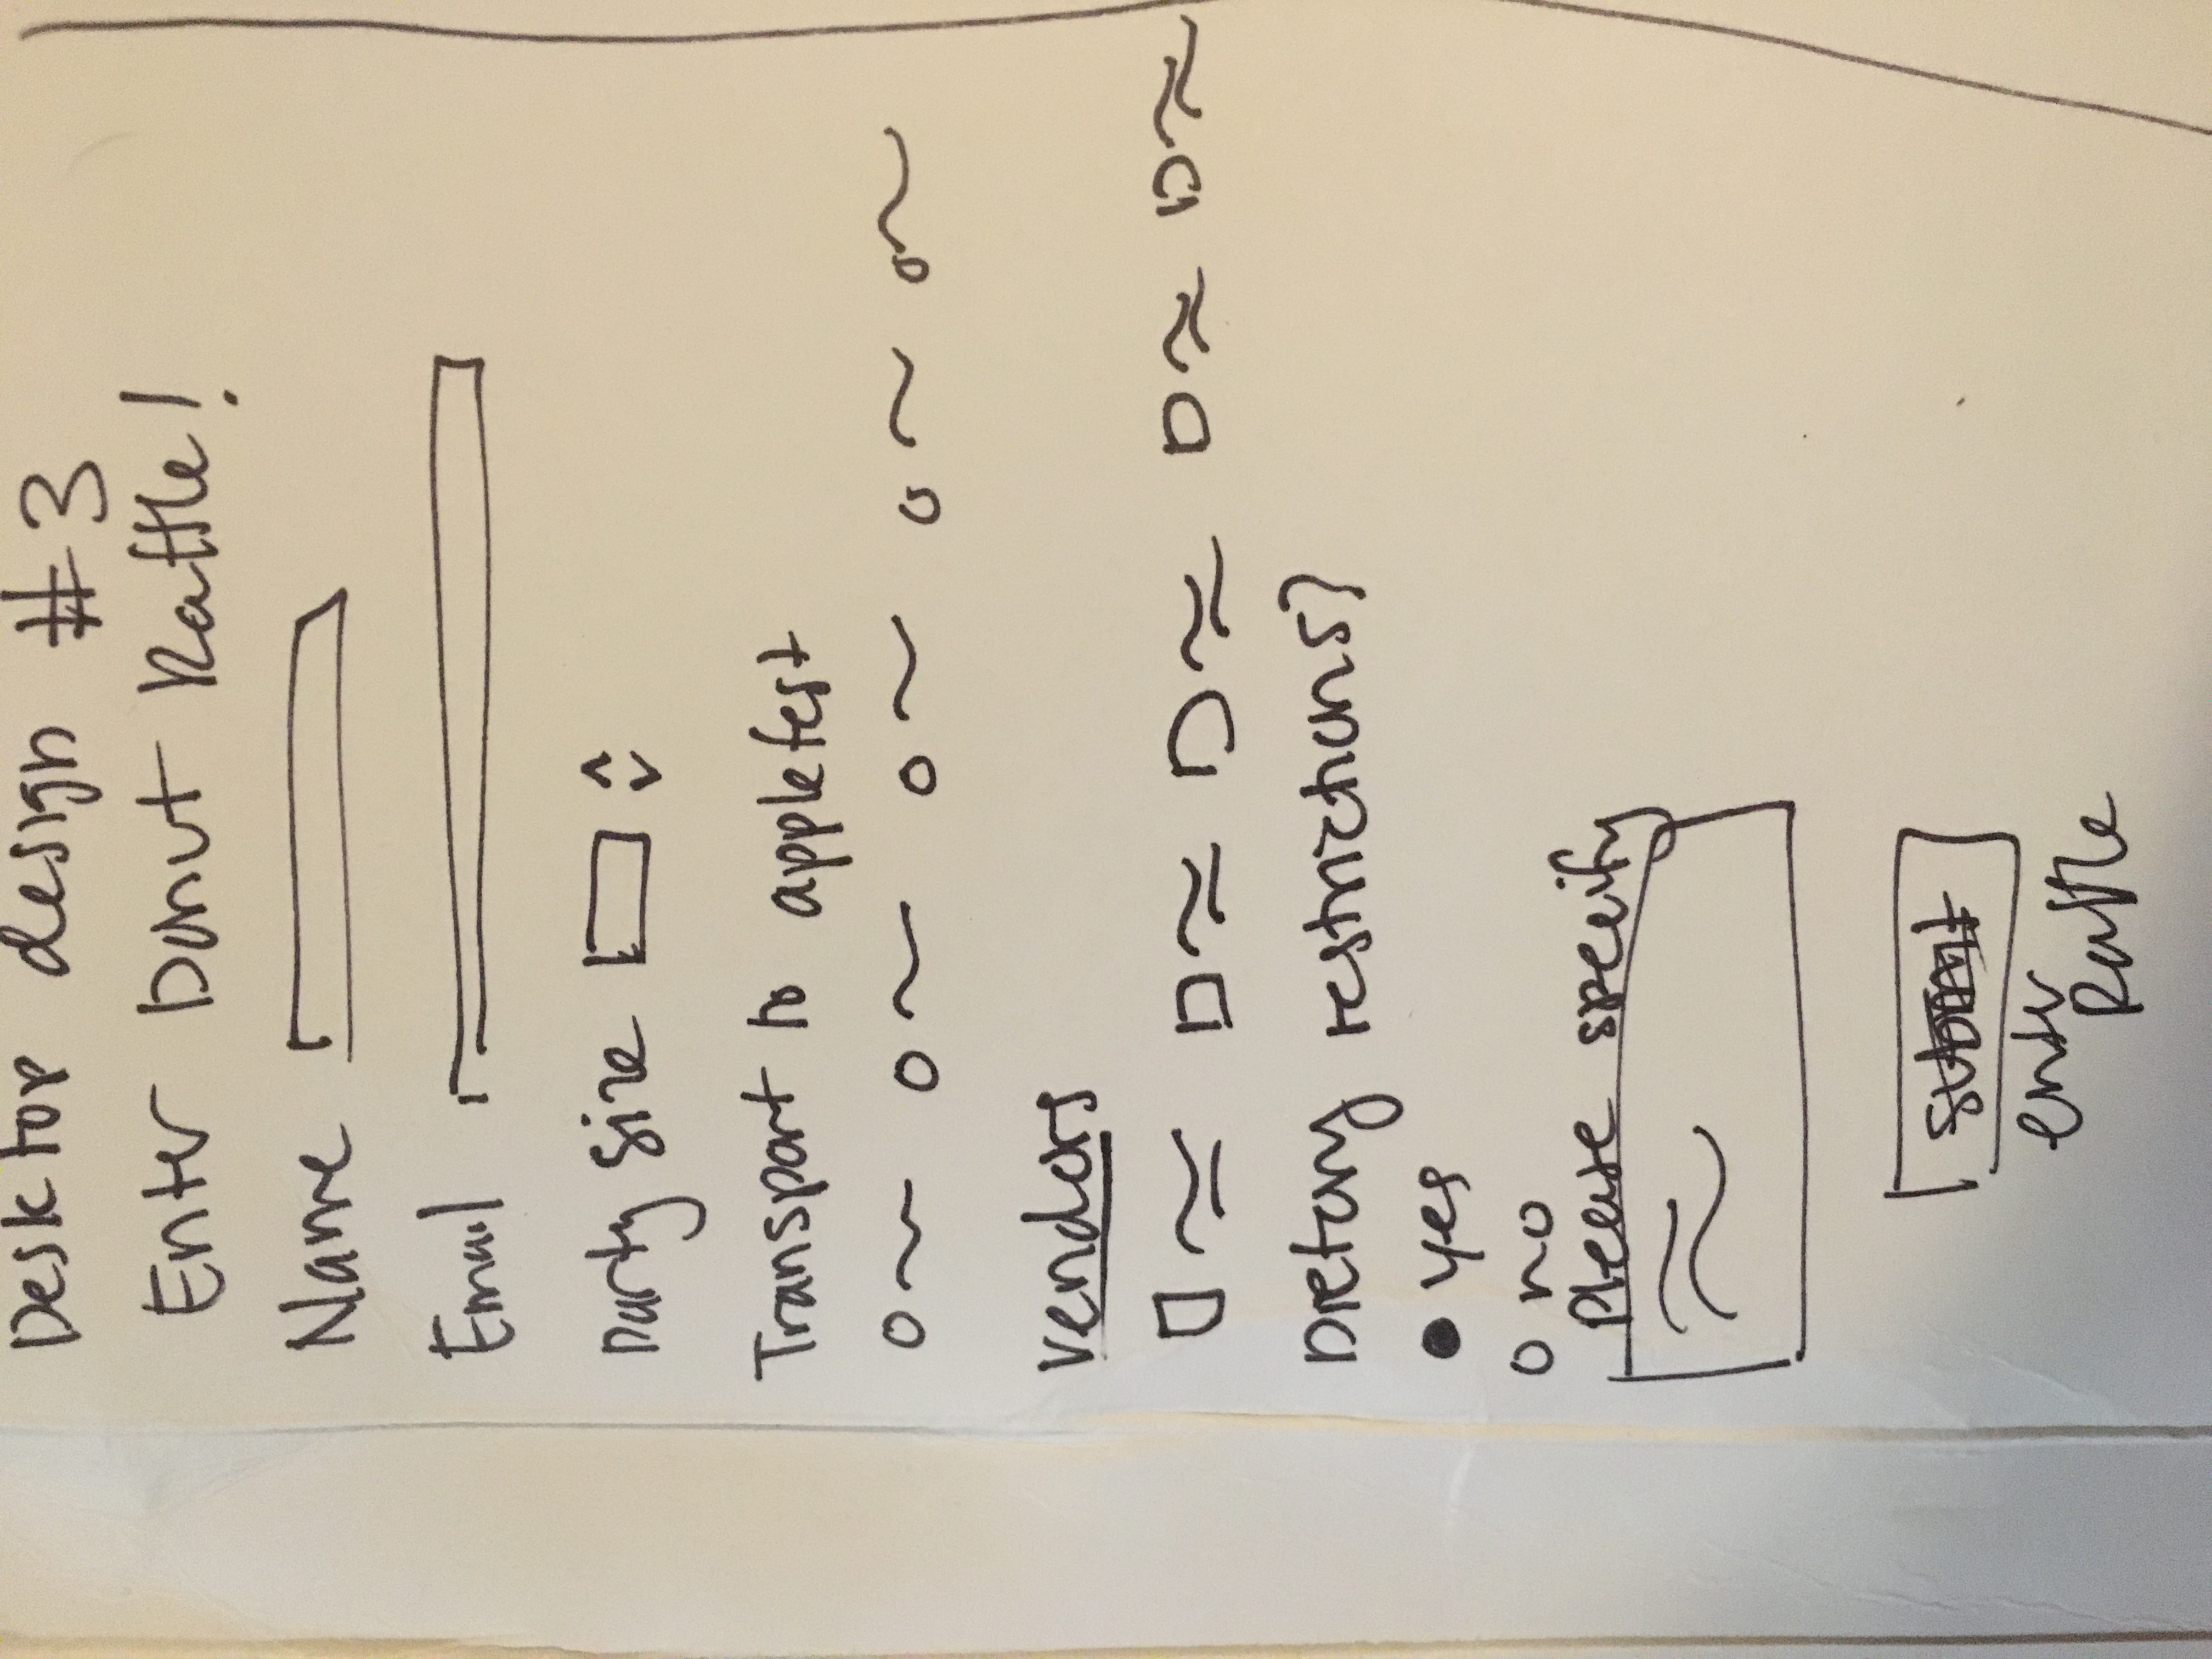 Desktop design #3
Enter Donut Raffle!
Name
Email
Party size
Transport to applefest
vendors
Dietary restrictions?
yes
no
Please specify
submit
enter
Raffle